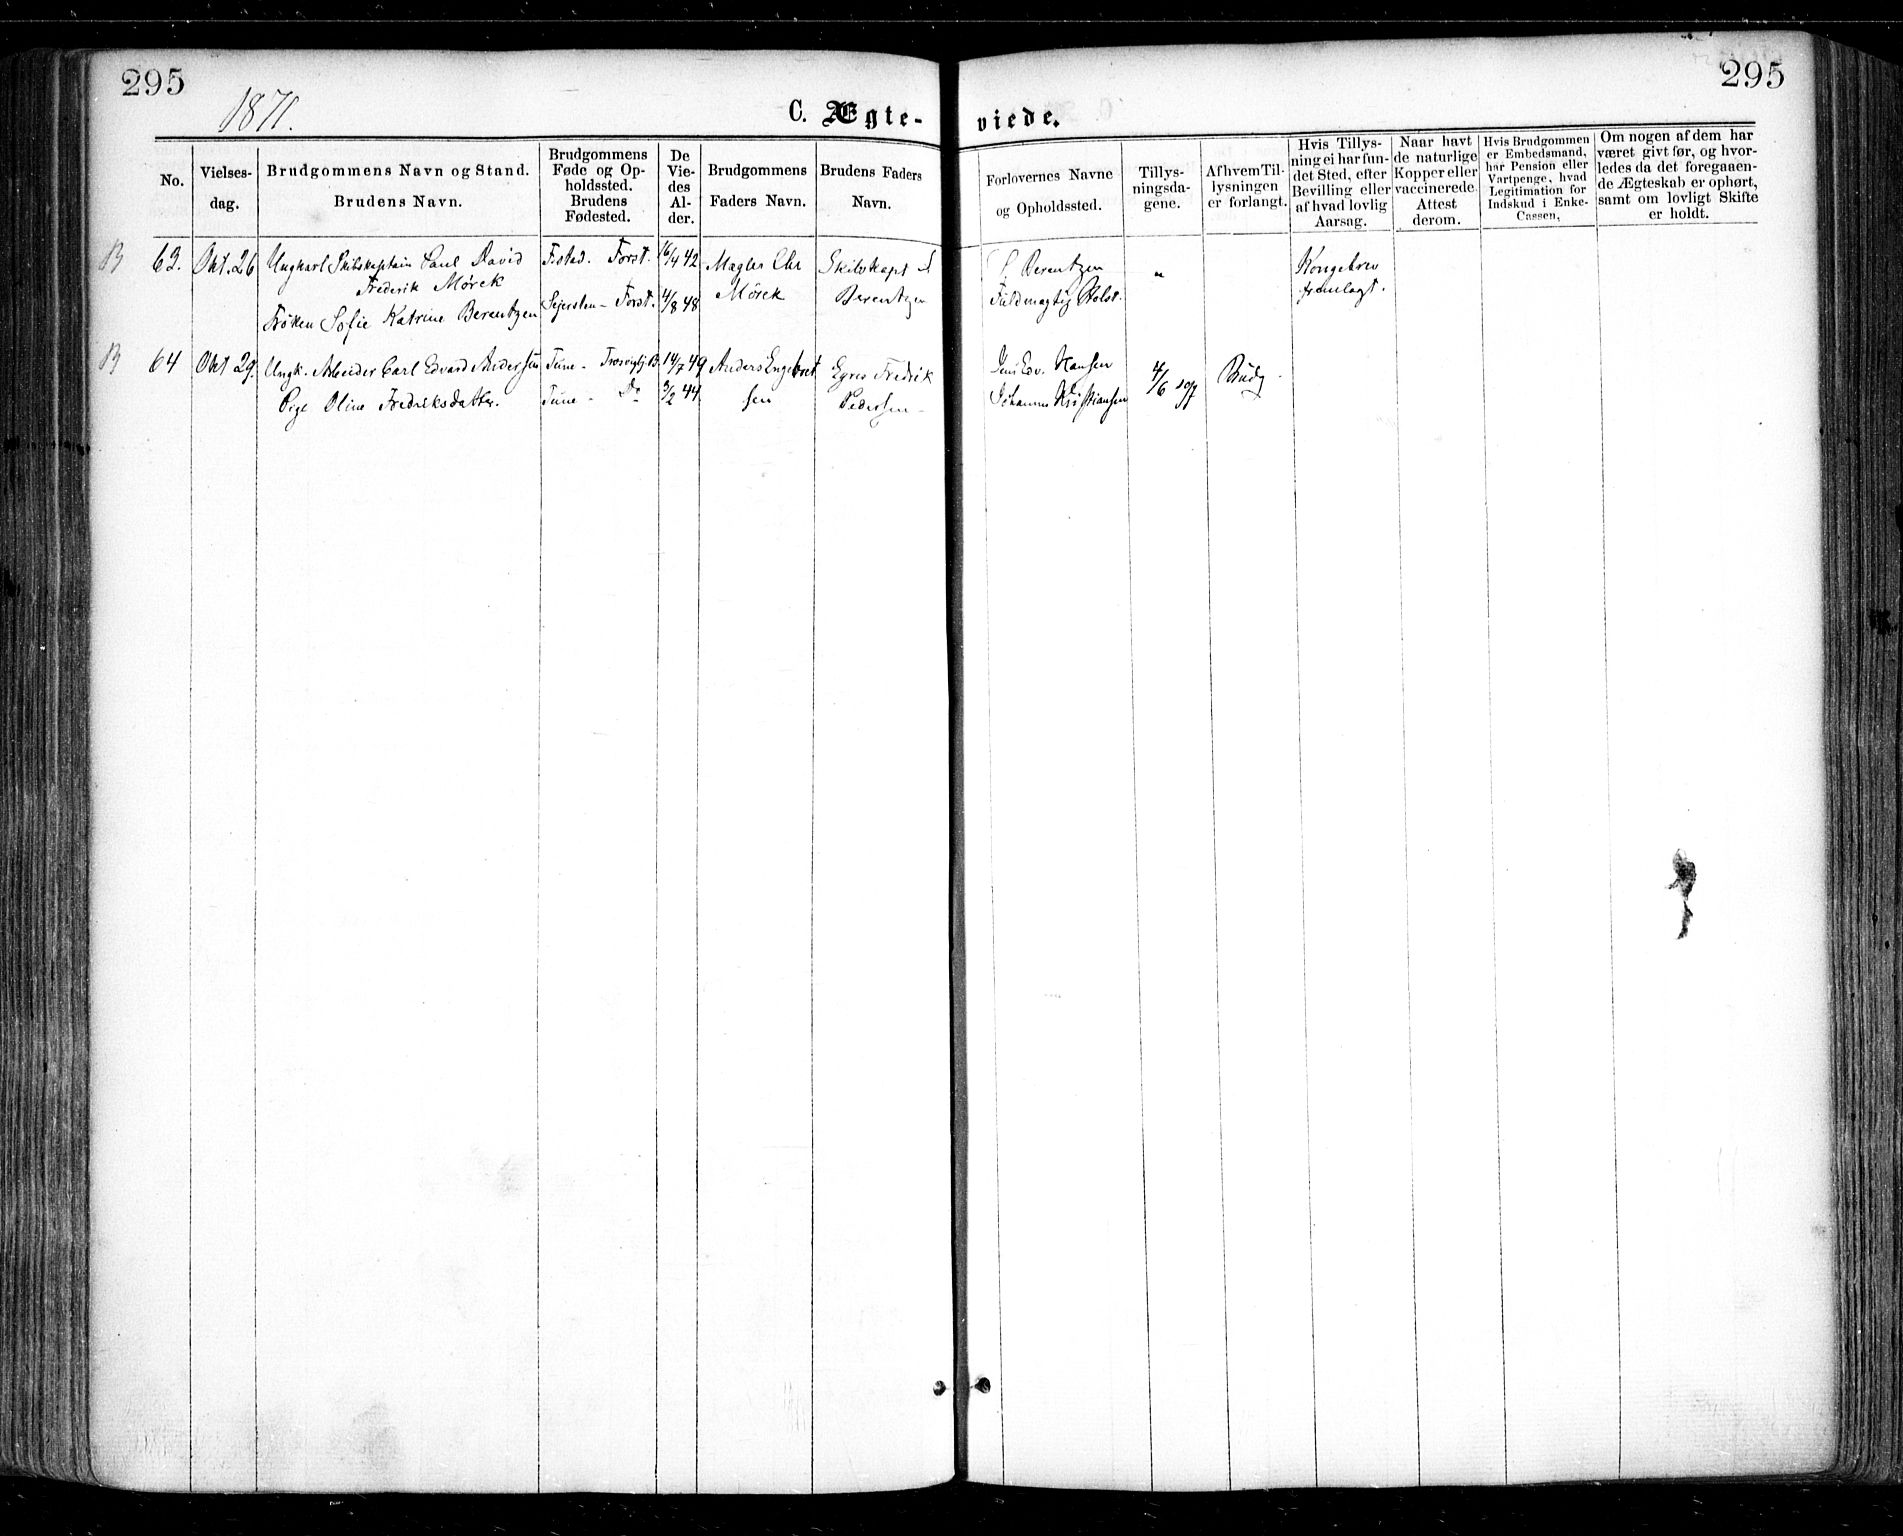 295
295
1871.
C. Ægte-
viede.
No.
Vielses-
dag.
Brudgommens Navn og Stand.
Brudens Navn.
Brudgommens
Føde og Op-
holdssted.
Brudens
Fødested.
De
Vie-
des
Al-
der.
Brudgommens
Faders Navn.
Brudens Faders
Navn.
Forlovernes Navne
og Opholdssted.
Tillys-
ningsda-
gene.
Af hvem Til-
lysningen
er forlangt.
Hvis Tillys-
ning ei har fun-
det Sted, efter
Bevilling eller
af hvad lovlig
Aarsag.
Naar havt
de naturlige
Kopper eller
vaccinerede.
Attest
derom.
Hvis Brudgommen
er Embedsmand,
har Pension eller
Vartpenge, hvad
Legitimation for
Indskud i Enke-
Cassen.
Om nogen af dem har
været givt før, og hvor-
ledes da det foregaaen-
de Ægteskab er ophørt,
samt om lovligt Skifte
er holdt.
B 63. Okt. 26
Ungkarl Skibskaptain Carl David
Frederik Mørck
Frøken Sofie Katrine Berentzen
F.stad. Forst.
Sejersten - Forst.
16/4 42
4/8 48
Mægler Chr
Mørck
Skibskapt S
Berentzen
S. Berentzen
Fuldmægtig Holst.
"
Kongebrev
fremlagt.
B 64 Okt 29.
Ungk. Arbeider Carl Edvard Andersen
Pige Oline Fredriksdatter.
Tune - B.
Tune - Do
14/7 49
3/2 44
Anders Engebret
sen
Fredrik
Pedersen
Hansen
Johannes Kristiansen
4/6
Brudg.